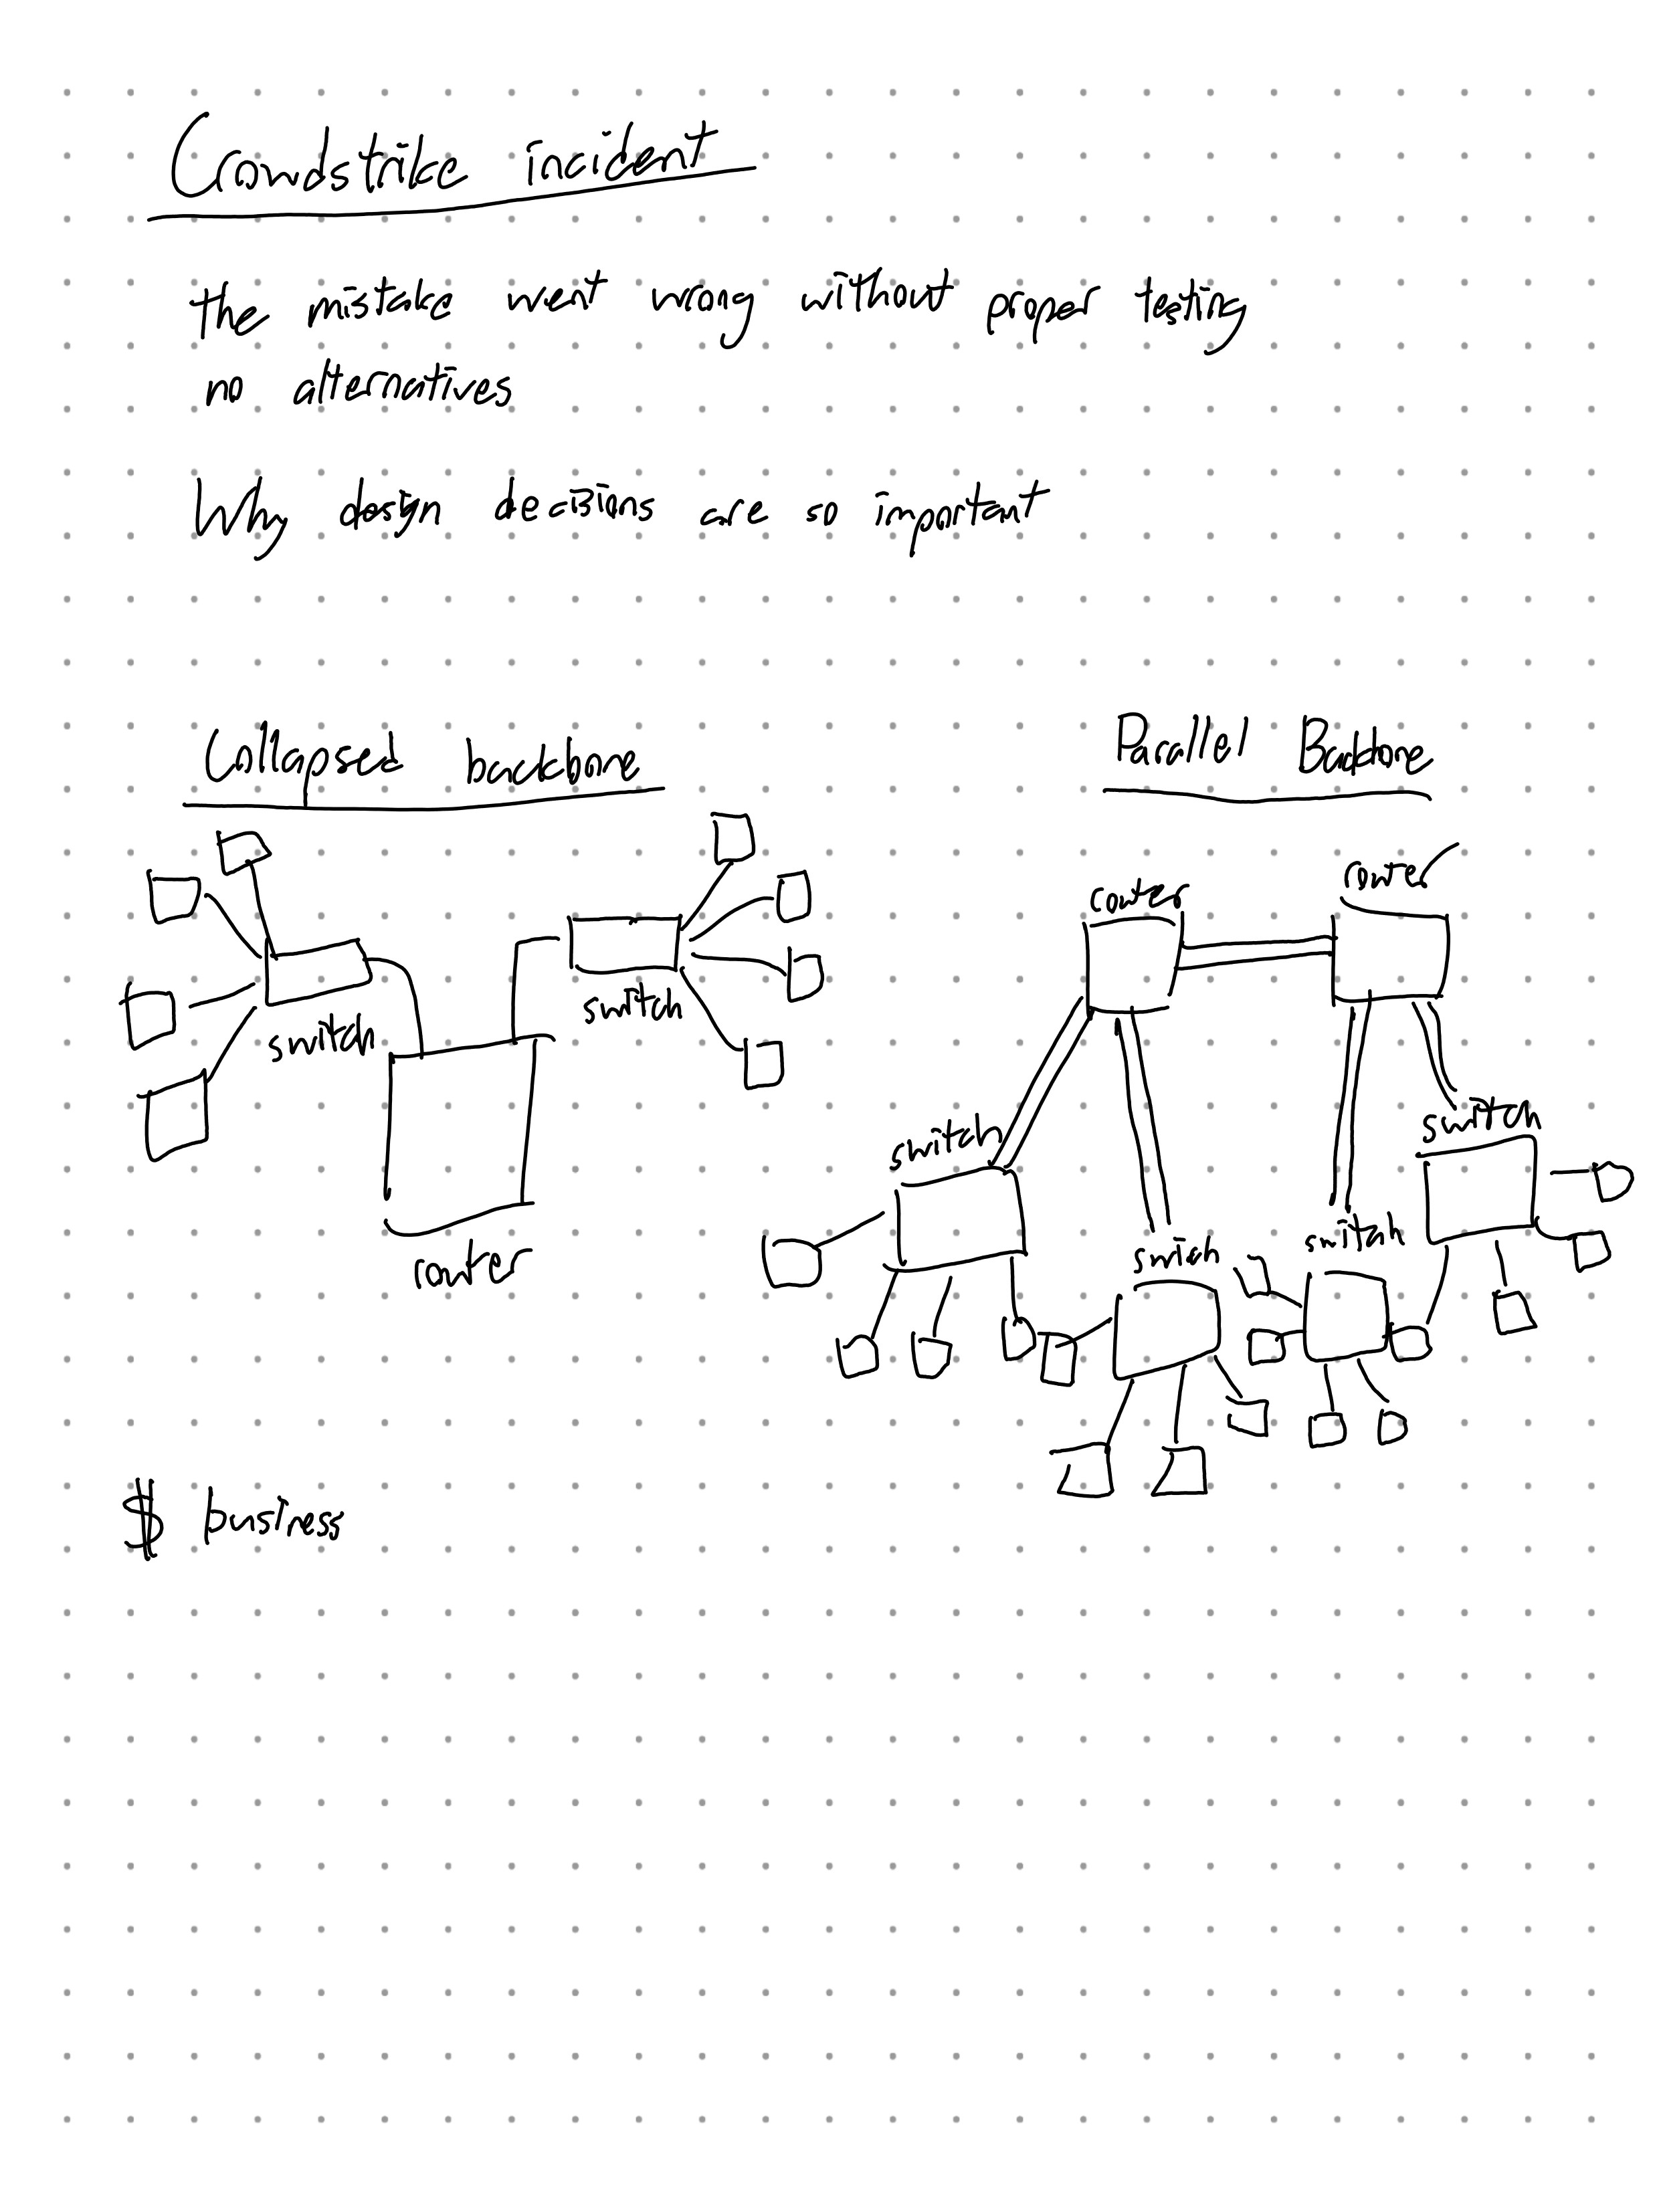 Crowdstrike incident
the mistake went wrong without proper testing
no alternatives
Why design decisions are so important
Collapsed backbone
switch
switch
router
Parallel Backbone
router
router
switch
switch
switch
switch
$ business